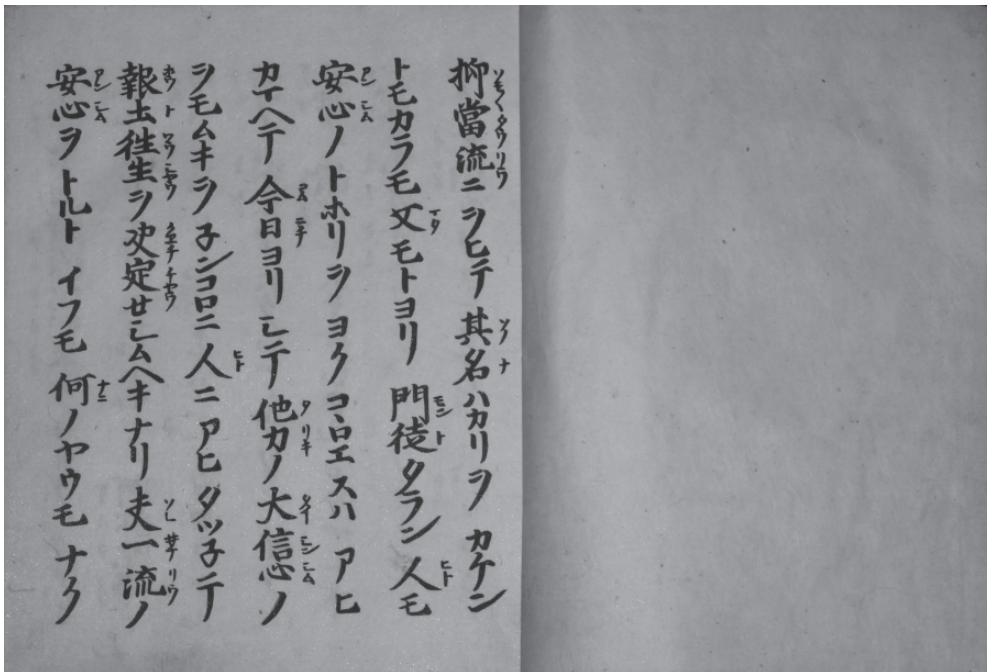 抑當流ニヲヒテ其名ハカリヲカケン
トモカラモ又モトヨリ門徒タラン人モ
安心ノトホリヲヨクコヽロエスハアヒ
カマヘテ今日ヨリシテ他力ノ大信心ノ
ヲモムキヲ子ンコロニ人ニアヒタツ子テ
報土往生ヲ决定セシムヘキナリ夫一流ノ
安心ヲトルトイフモ何ノヤウモナク